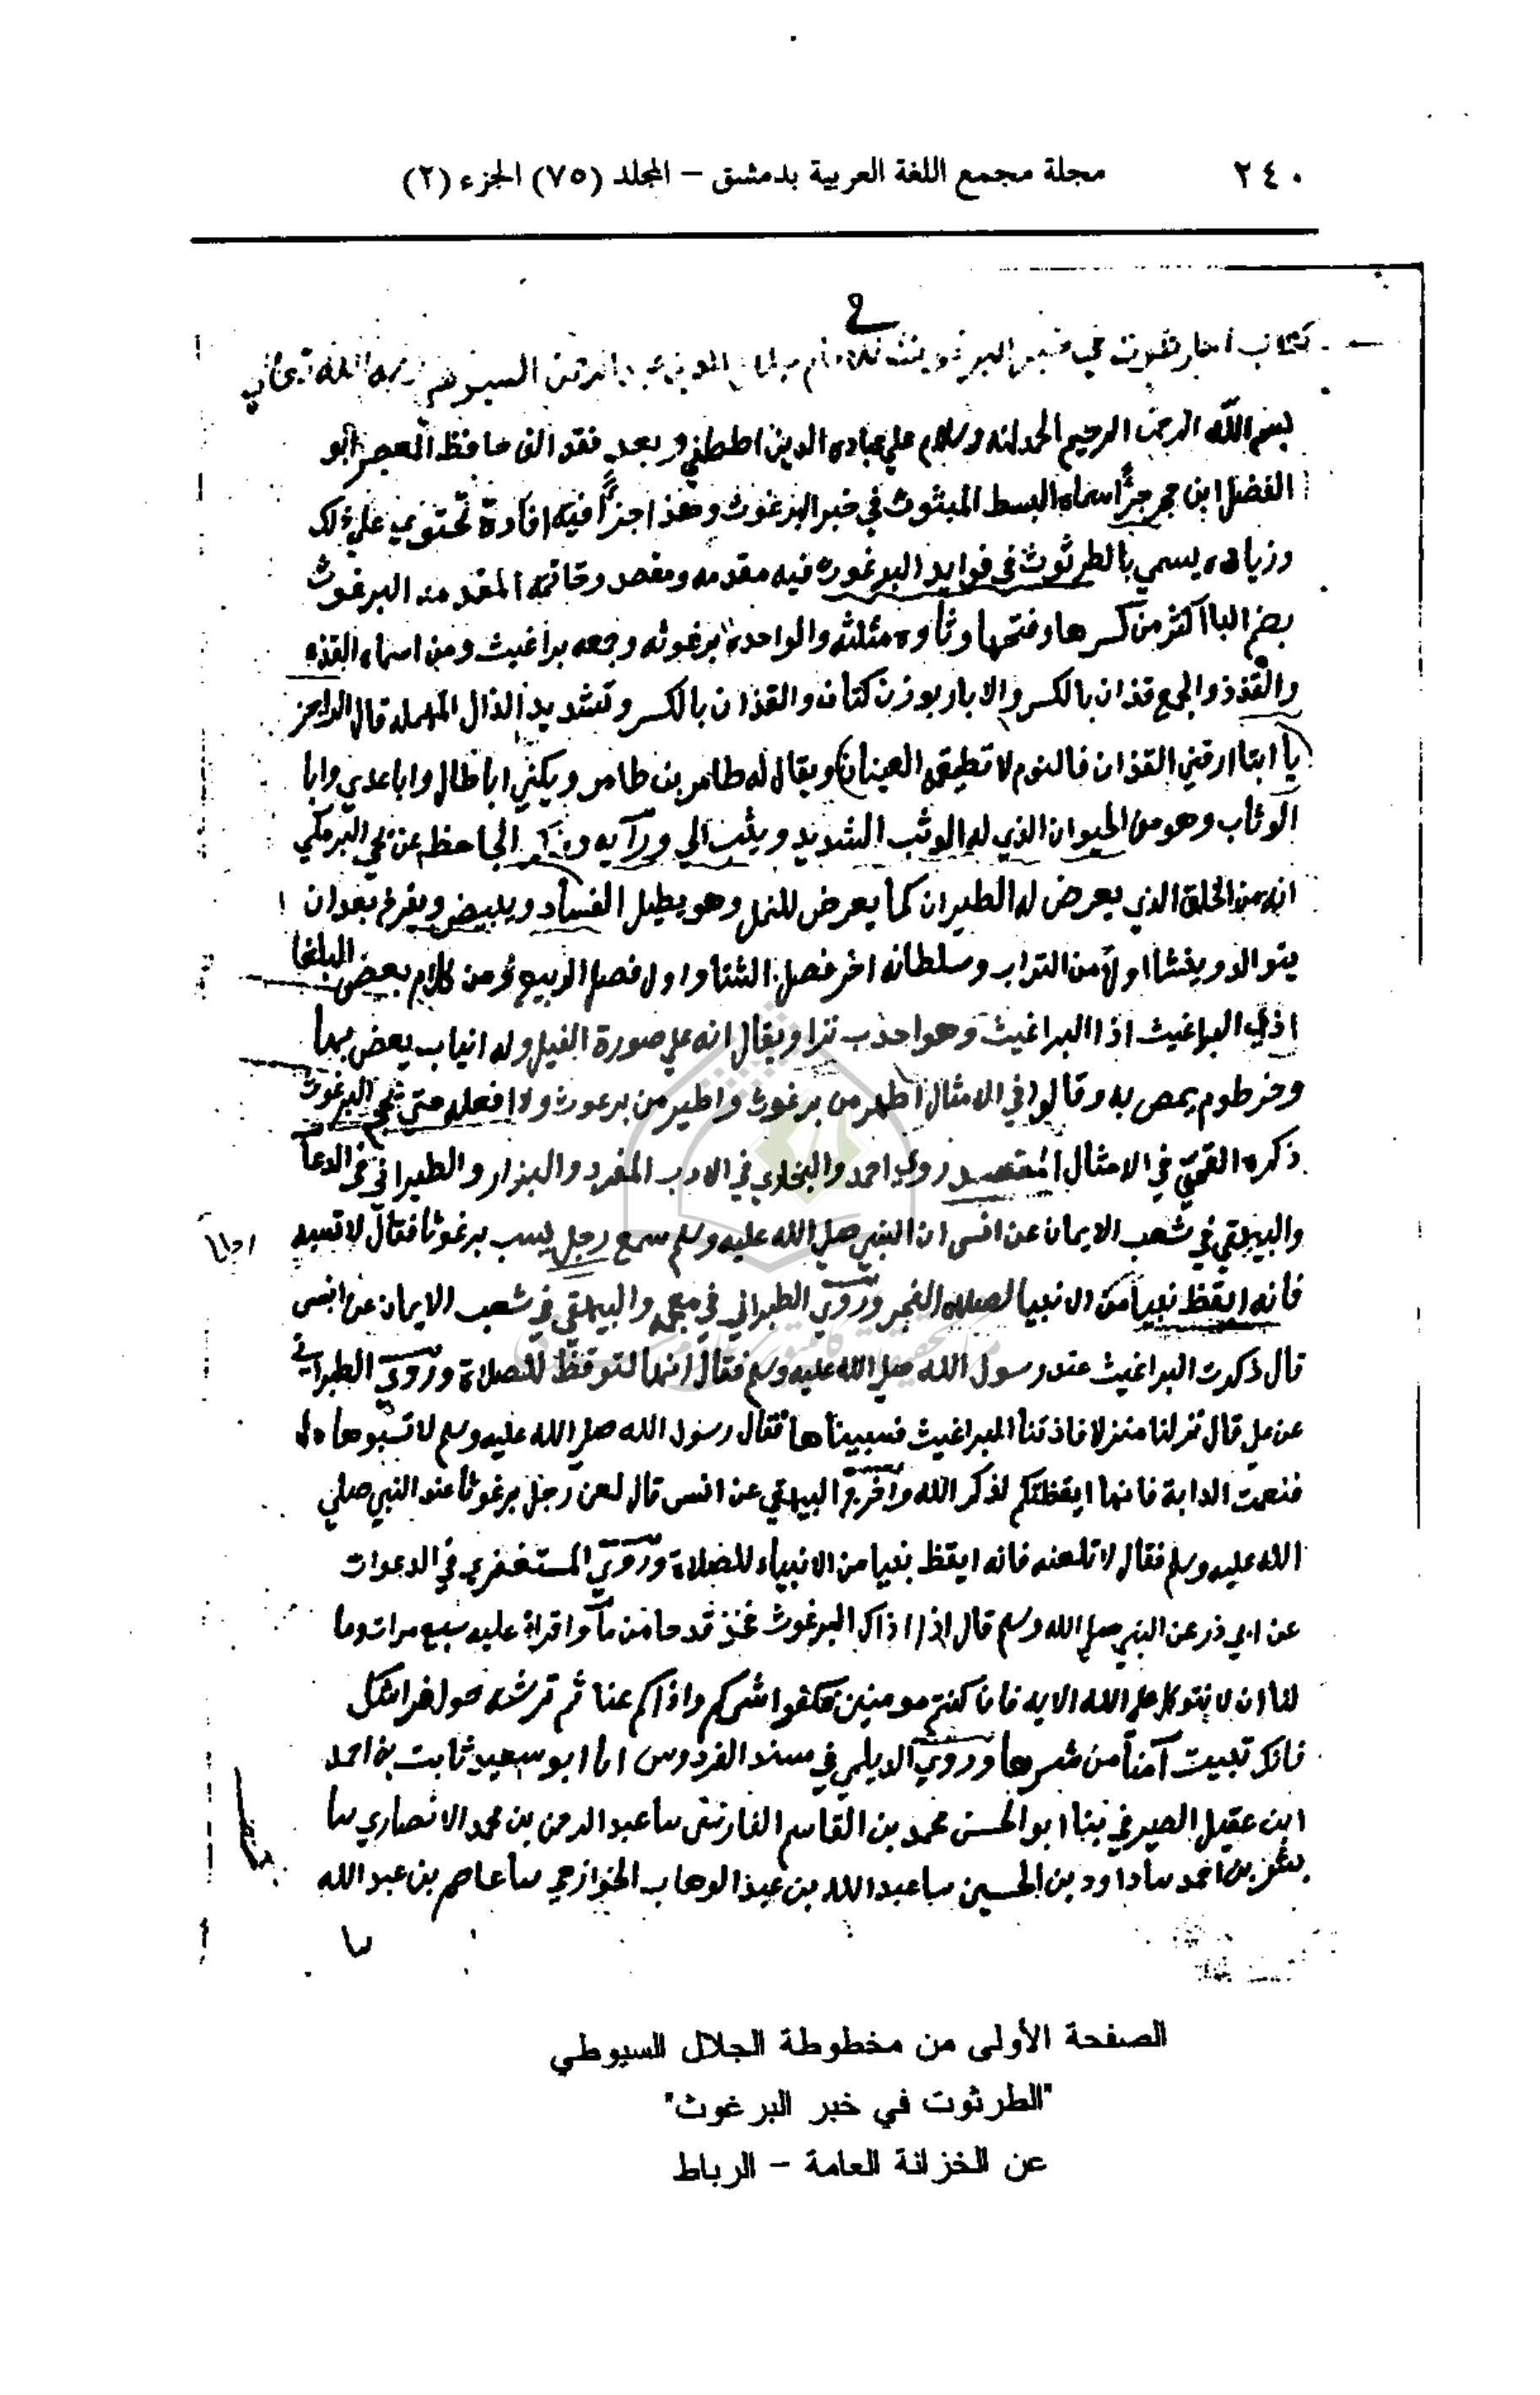 ٢٤٠ مجلة مجمع اللغة العربية بدمشق – المجلد (٧٥) الجزء (٢)
كتاب الطرثوث في خبر البرغوث للامام جلال الدين عبد الرحمن السيوطي رحمه الله تعالى
بسم الله الرحمن الرحيم الحمد لله وسلام على عباده الدين اصطفى وبعد فقد الف حافظ العصر ابو
الفضل ابن حجر جزأ اسماه البسط المبثوث في خبر البرغوث وهذا جزأ فيه افادة تحتوي على ذلك
وزياده يسمي بالطرثوث في فوايد البرغوث فيه مقدمه ومقصد وخاتمه المقدمه البرغوث
بضم البا اكثر من كسرها وفتحها وثاوه مثلثه والواحده برغوثه وجمعه براغيث ومن اسماءه القذه
والقذذ والجمع قذان بالكسر والابار بوزن كتان والقذان بالكسر وتشديد الذال المهمله قال الراجز
يا ابتا ارقني القذان فالنوم لا تطيقه العينان ويقال له طامر بن طامر ويكني ابا طال وابا عدي وابا
الوثاب وهو من الحيوان الذي له الوثب الشديد ويثب الي ورآيه وذكر الجاحظ عن يحي البرمكي
انه من الخلق الذي يعرض له الطيران كما يعرض للنمل وهو يطيل الفساد ويبيض ويفرخ بعد ان
يتوالد وينشأ اولا من التراب وسلطانه اخر فصل الشتا واول فصل الربيع ومن كلام بعض البلغا
اذي البراغيث اذا البراغيث وهو احذب نزا ويقال انه علي صورة الفيل وله انياب يعض بها
وخرطوم يمص به وقالوا في الامثال اطمر من برغوث واطير من برغوث ولا افعله حتي يحج البرغوث
ذكره القمي في الامثال المقصد روي احمد والبخاري في الادب المفرد والبزار والطبراني في الدعا
والبيهقي في شعب الايمان عن انس ان النبي صلي الله عليه وسلم سمع رجل يسب برغوثا فقال لا تسبه
فانه ايقظ نبيا من الانبيا لصلاه الفجر وروي الطبراني في معجمه والبيهقي في شعب الايمان عن انس
قال ذكرت البراغيث عند رسول الله صلي الله عليه وسلم فقال انها لتوقظ للصلاة وروي الطبراني
عن علي قال نزلنا منزلا فاذتنا البراغيث فسببناها فقال رسول الله صلي الله عليه وسلم لا تسبوها
فنعمت الدابة فانها ايقظتكم لذكر الله واخرج البيهقي عن انس قال لعن رجل برغوثا عند النبي صلي
الله عليه وسلم فقال لا تلعنه فانه ايقظ نبيا من الانبياء للصلاة وروي المستغفري في الدعوات
عن ابي ذر عن النبي صلي الله وسلم قال اذا اذاك البرغوث فخذ قدحا من مآ واقرأ عليه سبع مرات وما
لنا ان لا نتوكل علي الله الايه فان كنتم مومنين فكفوا شركم واذاكم عنا ثم ترشه حول فراشك
فانك تبيت آمنا من شرها وروي الديلمي في مسند الفردوس انا ابو سعيد ثابت بن احمد
ابن عقيل الصيرفي بنا ابو الحسن محمد بن القاسم الفارسي سا عبد الرحمن بن محمد الانصاري سا
بشر بن احمد سا داود بن الحسين سا عبد الله بن عبد الوهاب الخوازمي سا عاصم بن عبد الله
الصفحة الأولى من مخطوطة الجلال السيوطي
"الطرثوت في خبر البرغوث"
عن الخزانة العامة – الرباط